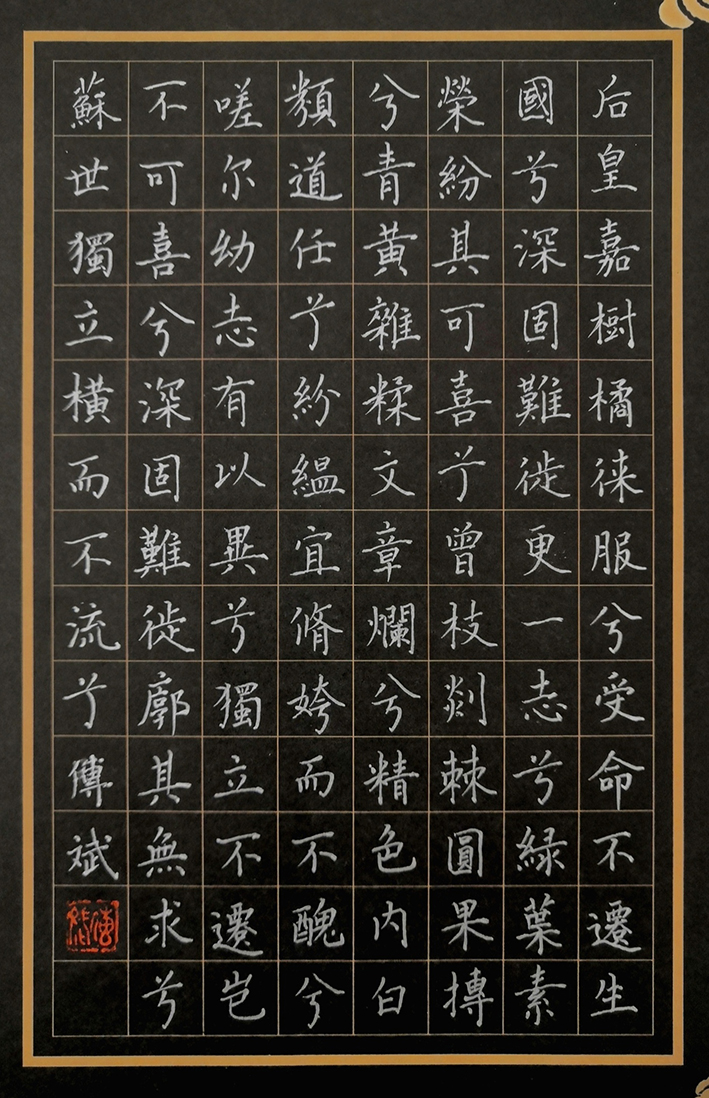 后皇嘉樹橘徕服兮受命不遷生
國兮深固難徙更一志兮緑葉素
榮紛其可喜兮曾枝剡棘圓果摶
兮青黃雜糅文章爛兮精色内白
類道任兮紛緼宜脩姱而不醜兮
嗟尔幼志有以異兮獨立不遷岂
不可喜兮深固難徙廓其無求兮
蘇世獨立橫而不流兮傅斌